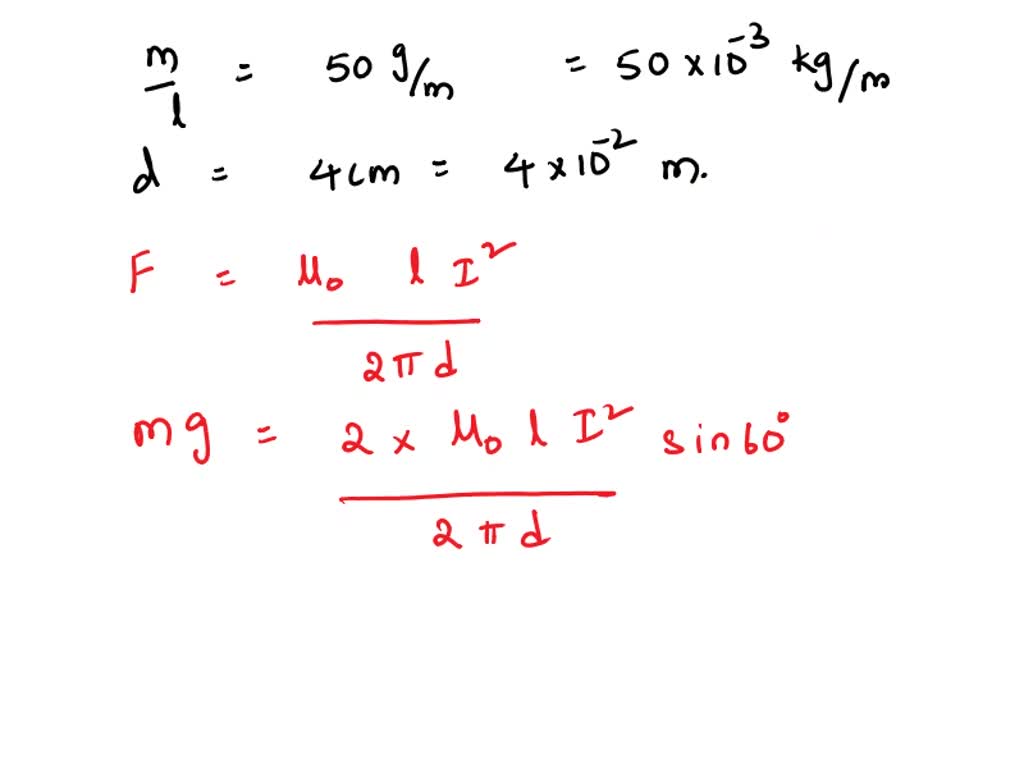 m/l = 50 g/m = 50 × 10⁻³ kg/m
d = 4cm = 4 × 10⁻² m.
F = μ₀ l I²
2πd
mg = 2 × μ₀ l I² sin60°
2πd